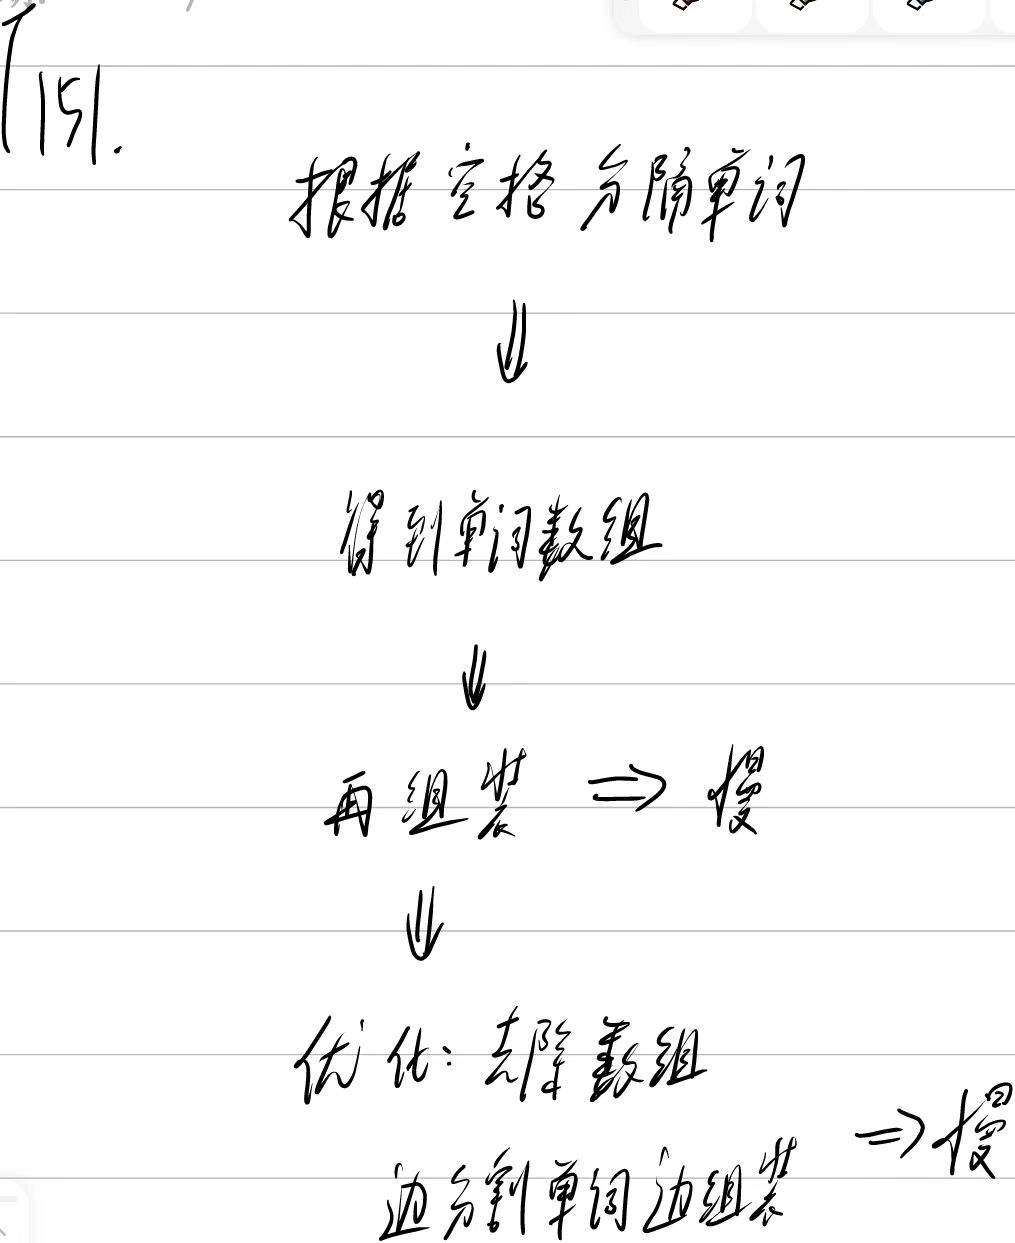 T151.
根据空格分隔单词
⇓
得到单词数组
⇓
再组装 ⇒ 慢
⇓
优化：去除数组
边分割单词边组装 ⇒ 慢